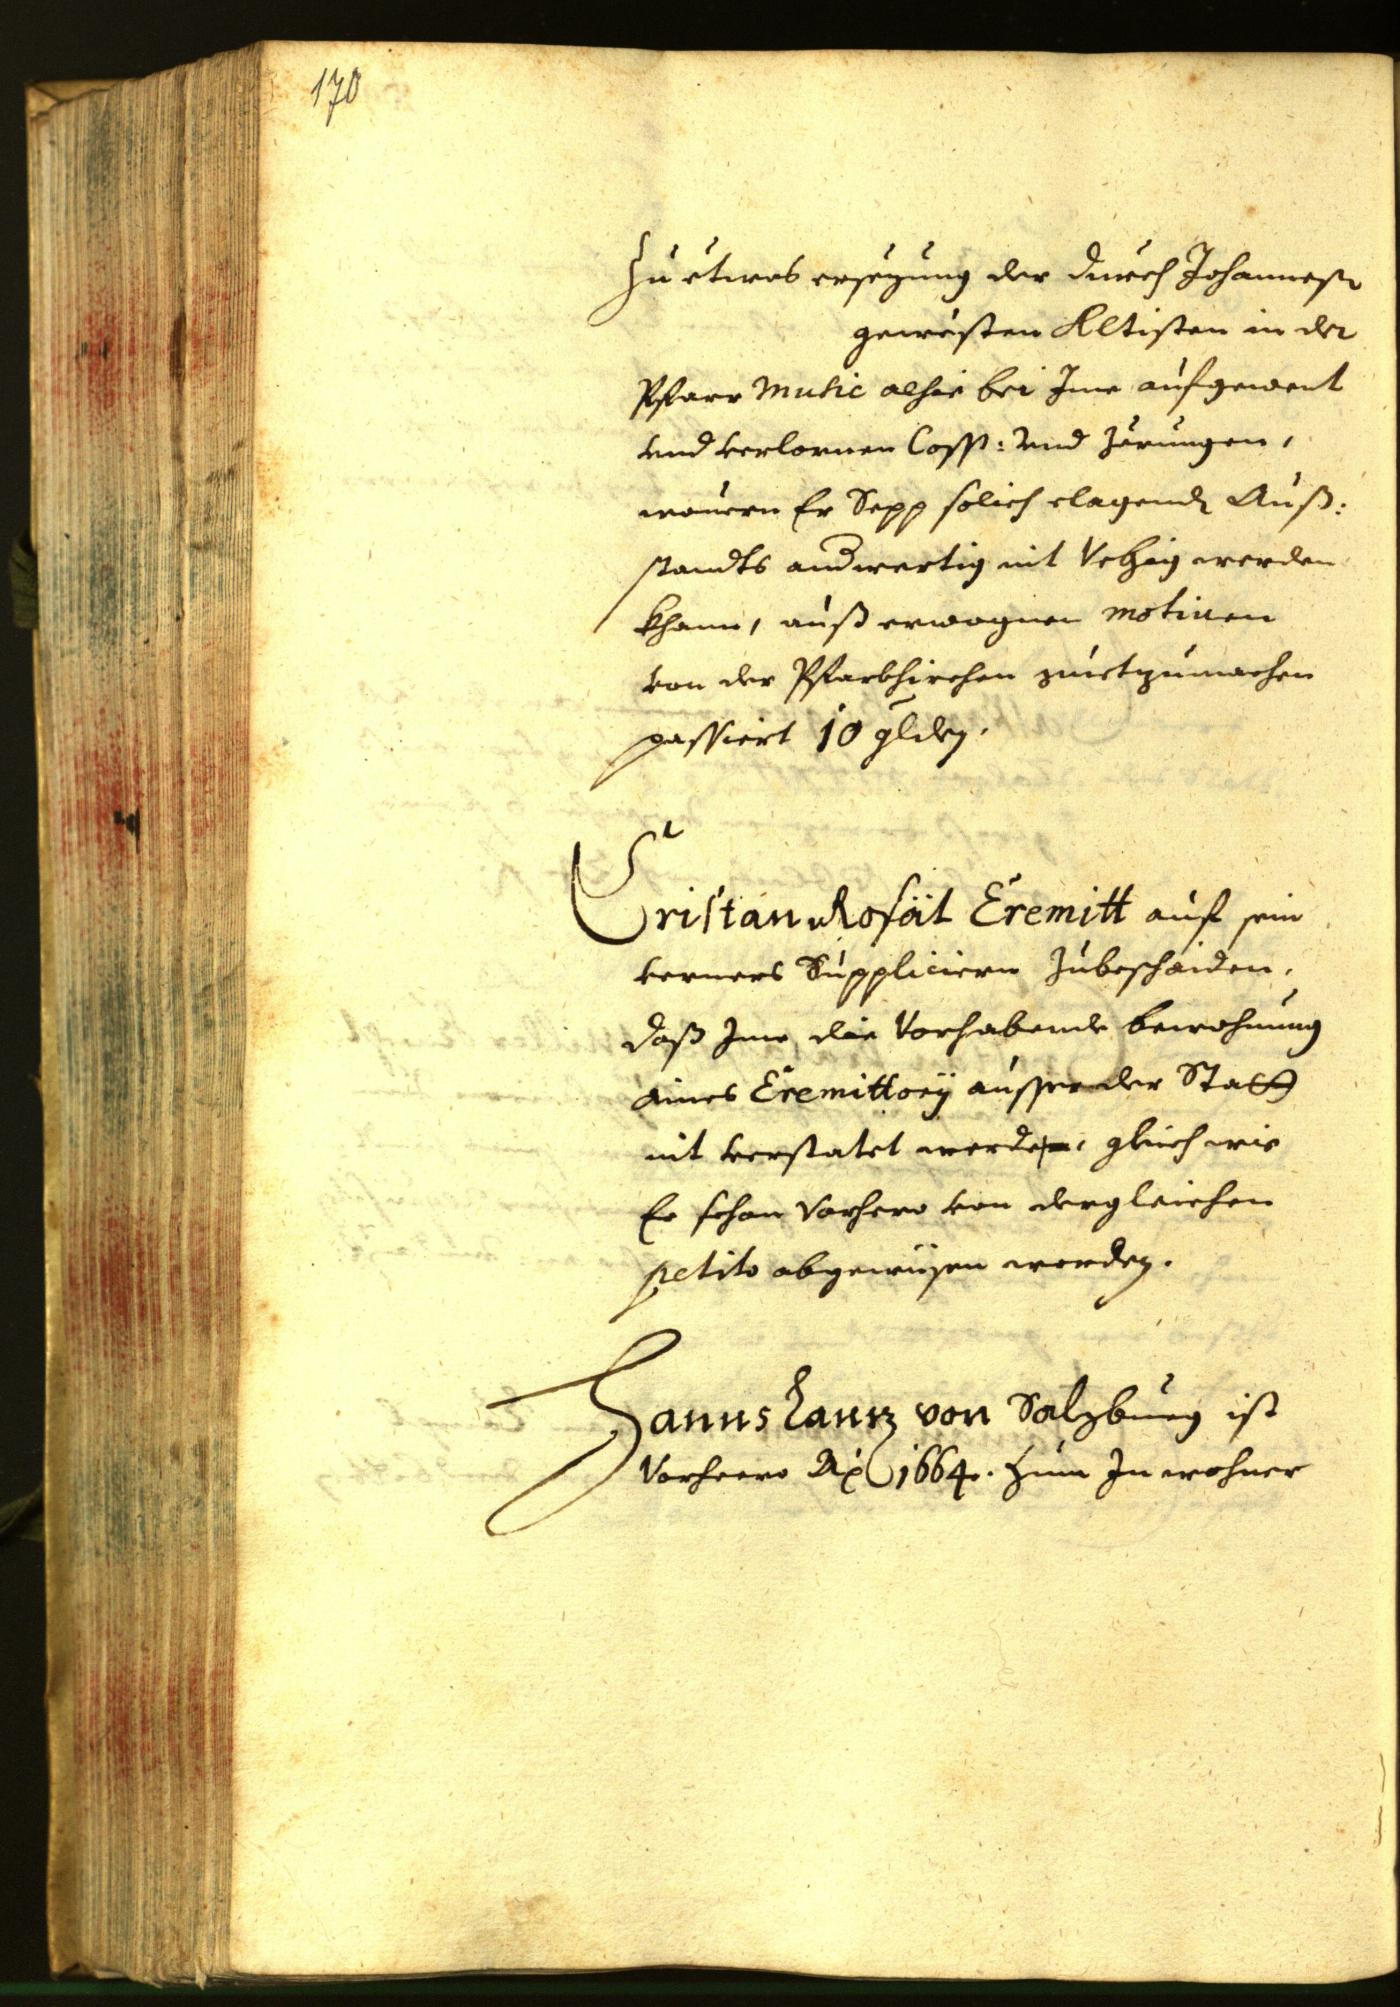 170
Zu etwas ersezung der durch Johannesen
gewesten Altisten in der
Pfarr Music alhie bei Ime aufgewent
vnd verlornen Cosst: vnd Zörungen,
wouern Er Sepp solich clagende Auß:
standts anderwertig nit Vehig werden
khann, auß erwognen motiuen
von der Pfarkhirchen guetzumachen
passiert 10 glden.
Cristan Rofäit Eremitt auf sein
verners Suppliciern Zubeschaiden,
daß Ime die Vorhabende bewohnung
aines Eremittorÿ ausser der Statt
nit verstatet werde, gleich wie
Er schon Vorhero von dergleichen
petito abgewüsen worden.
Hanns Lanz von Salzburg ist
Vorhero Aõ 1664. Zum Inwohner